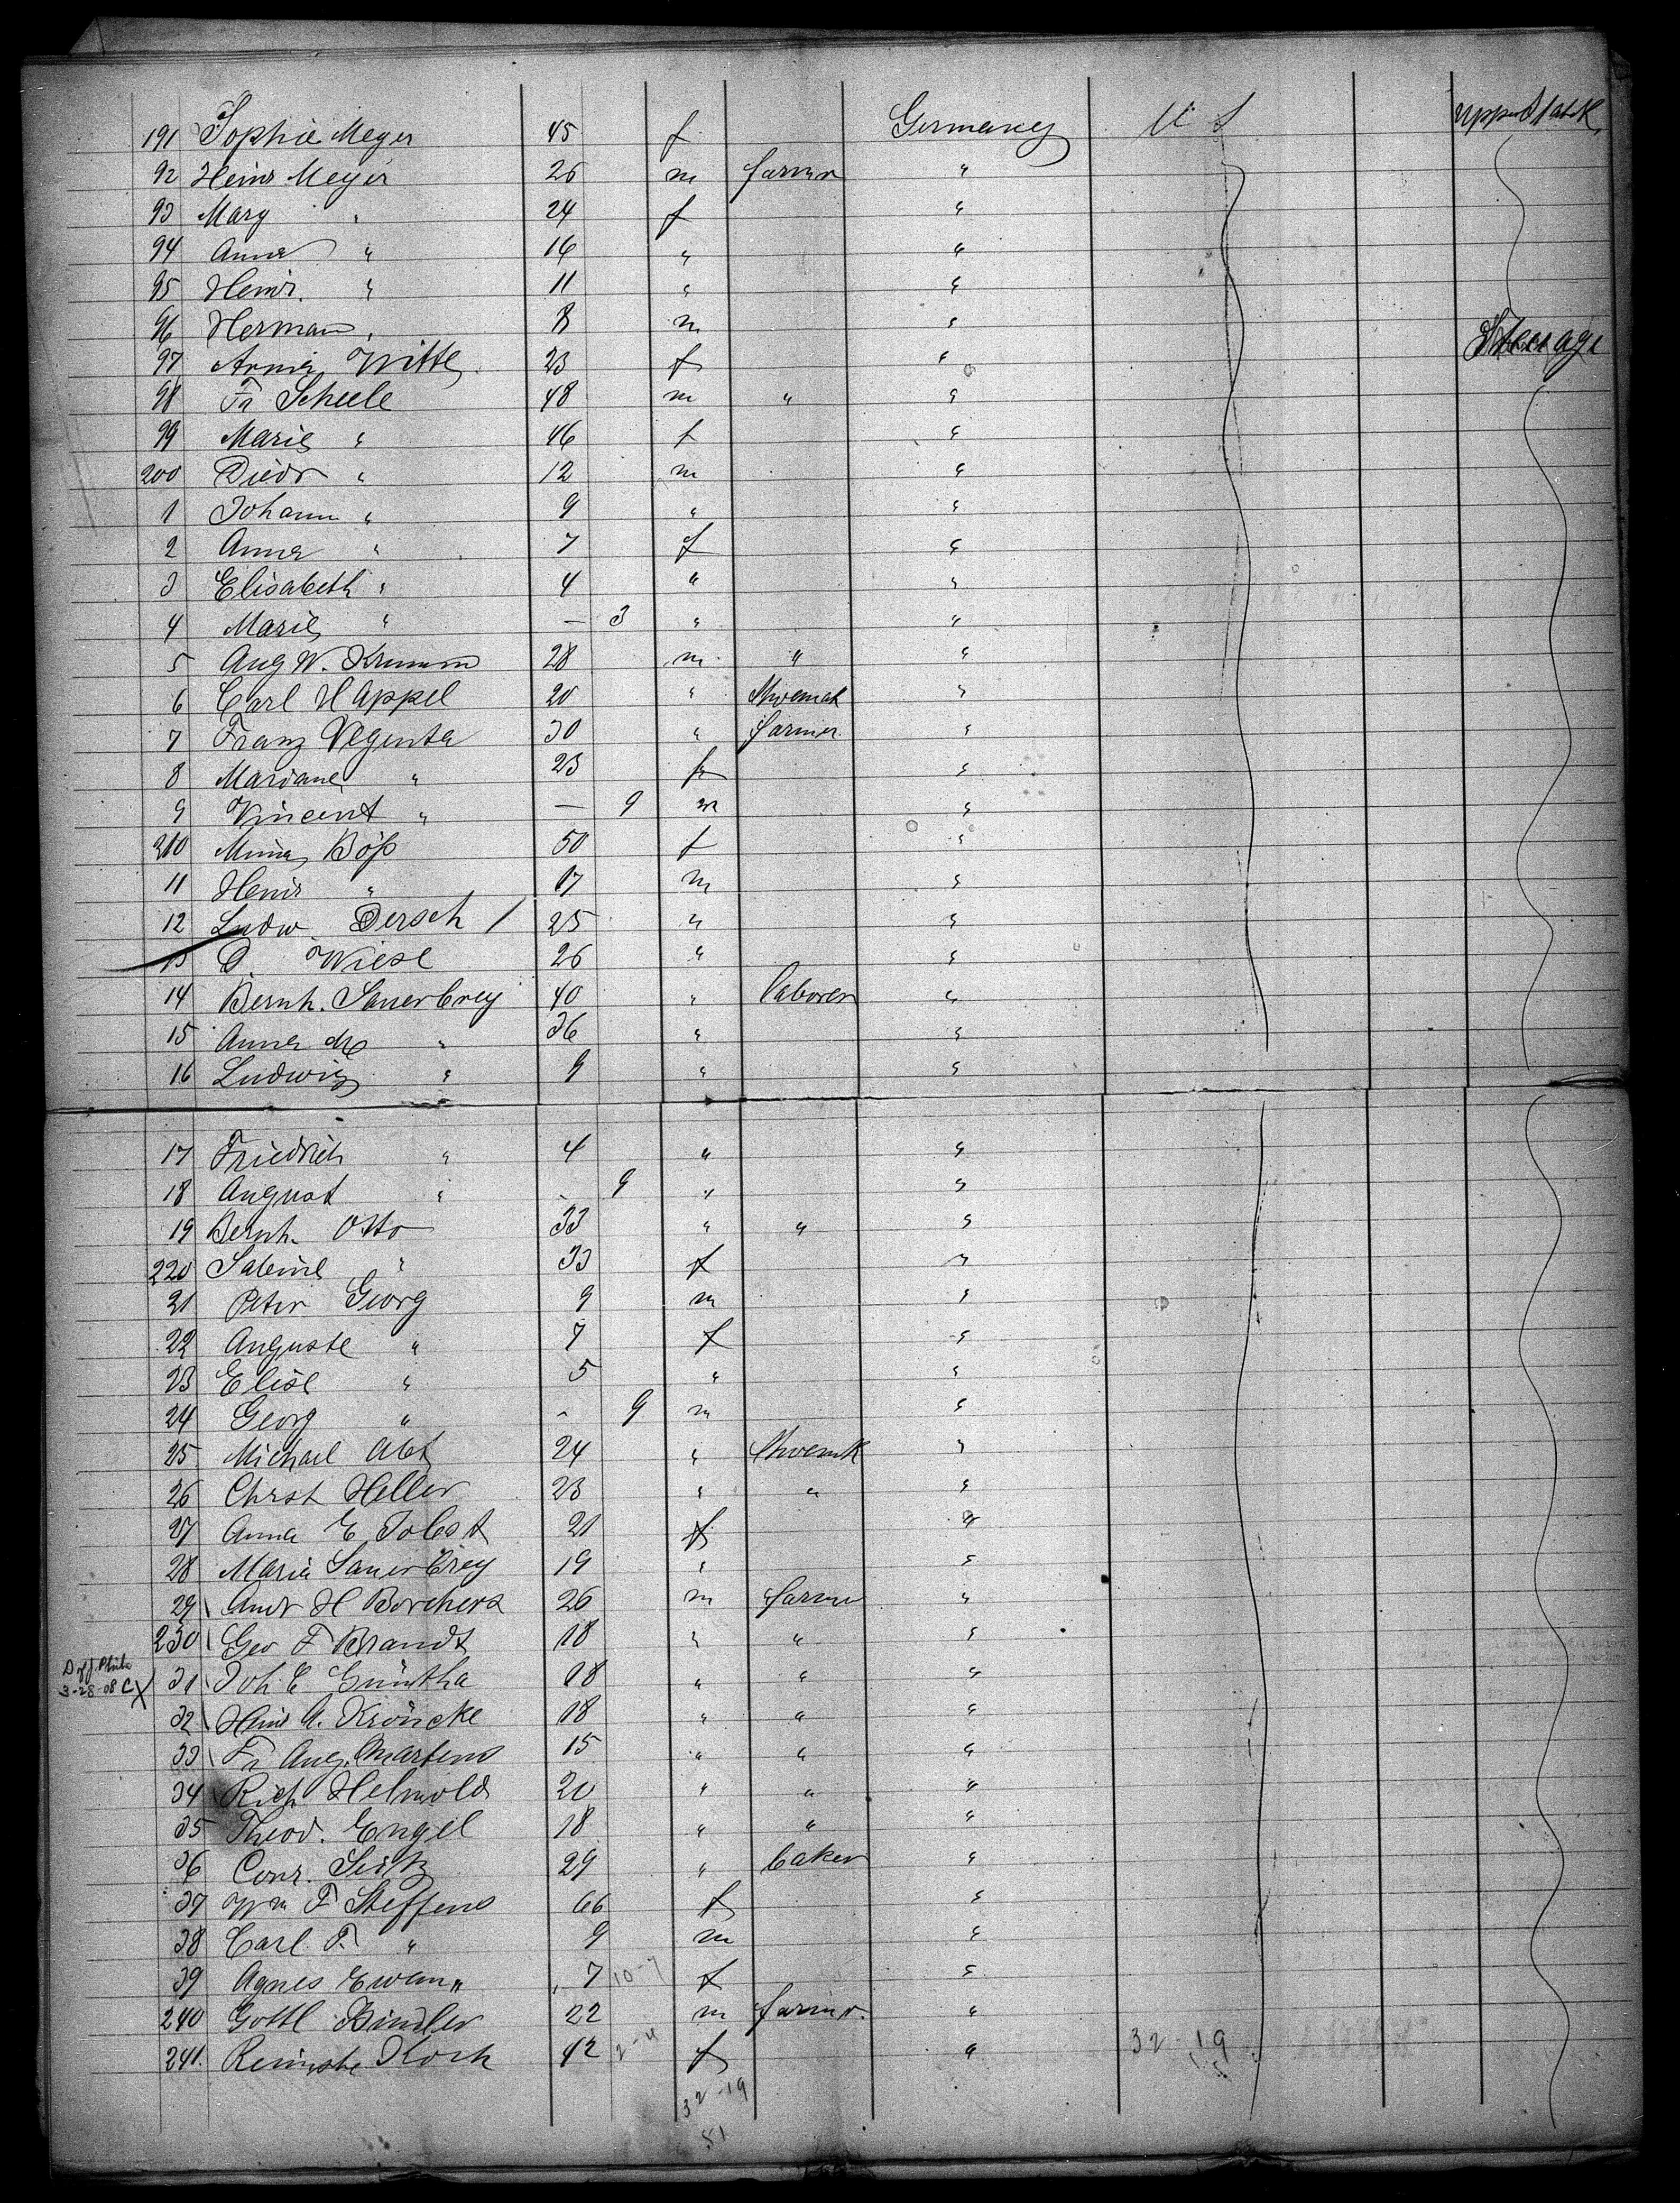 191 Sophie Meyer 45 f Germany U S Upper
92 Heinr Meyer 26 m farmer "
93 Mary " 24 f "
94 Anna " 16 " "
95 Heinr. " 11 " "
96 Herman " 8 m "
97 Anna Witte 23 f " Steerage
98 Fr Scheele 48 m " "
99 Marie " 46 f "
200 Diedr " 12 m "
1 Johann " 9 " "
2 Anna " 7 f "
3 Elisabeth " 4 " "
4 Marie " — 3 " "
5 Aug W. Krumm 28 m " "
6 Carl H Appel 20 " "
7 Franz 30 " farmer "
8 Mariane " 23 f "
9 Vincent " — 9 m "
210 Böß 50 f "
11 Heinr " 17 m "
12 Ludw. Dersch / 25 " "
13 D Wiese 26 " "
14 Bernh. Sauerbrey 40 " laborer "
15 Anna M " 36 " "
16 Ludwig " 9 " "
17 Friedrich " 4 " "
18 August " - 9 " "
19 Bernh. Otto 33 " " "
220 Sabine " 33 f "
21 Peter Georg 9 m "
22 Auguste " 7 f "
23 Elise " 5 " "
24 Georg " - 9 m "
25 Michael Abt 24 " "
26 Christ Heller 23 " " "
27 Anna E Jobst 21 f "
28 Marie Sauerbrey 19 " "
29 Andr H Borchers 26 m farmer "
230 Geo F Brandt 18 " " "
3-28-08 C X 31 Joh E Güntha 18 " " "
32 Heinr A. Kröncke 18 " " "
33 Fr Aug. Martens 15 " " "
34 Rich Helmold 20 " " "
35 Theod. Engel 18 " " "
36 Conr. Seitz 29 " baker "
37 Wm F Steffens 66 f "
38 Carl F. " 9 m "
39 Agnes Ewan " 7 10-7 f "
240 Gottl Bindler 22 m farmer "
241. Koch 42 2-4 f " 32-19
32-19
51